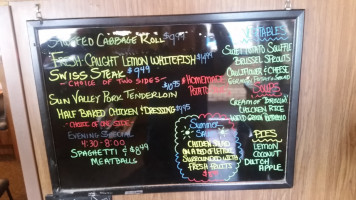 Stuffed Cabbage Roll $9.99
Fresh Caught Lemon Whitefish $14.99
Swiss Steak $9.49
- Choice of Two Sides -
Sun Valley Pork Tenderloin $10.95
Half Baked Chicken & Dressing $9.95
- Choice of One Side -
Evening Special
4:30-8:00
Spaghetti & $8.49
Meatballs
* Homemade
Vegetables
Sweet Potato Souffle
Brussel Sprouts
Cauliflower & Cheese
Soups
Cream of Broccoli
Chicken Rice
Summer
Salad
Chicken Salad
on a Bed of Lettuce
Surrounded with
Fresh Fruits
Pies
Lemon
Coconut
Dutch
Apple